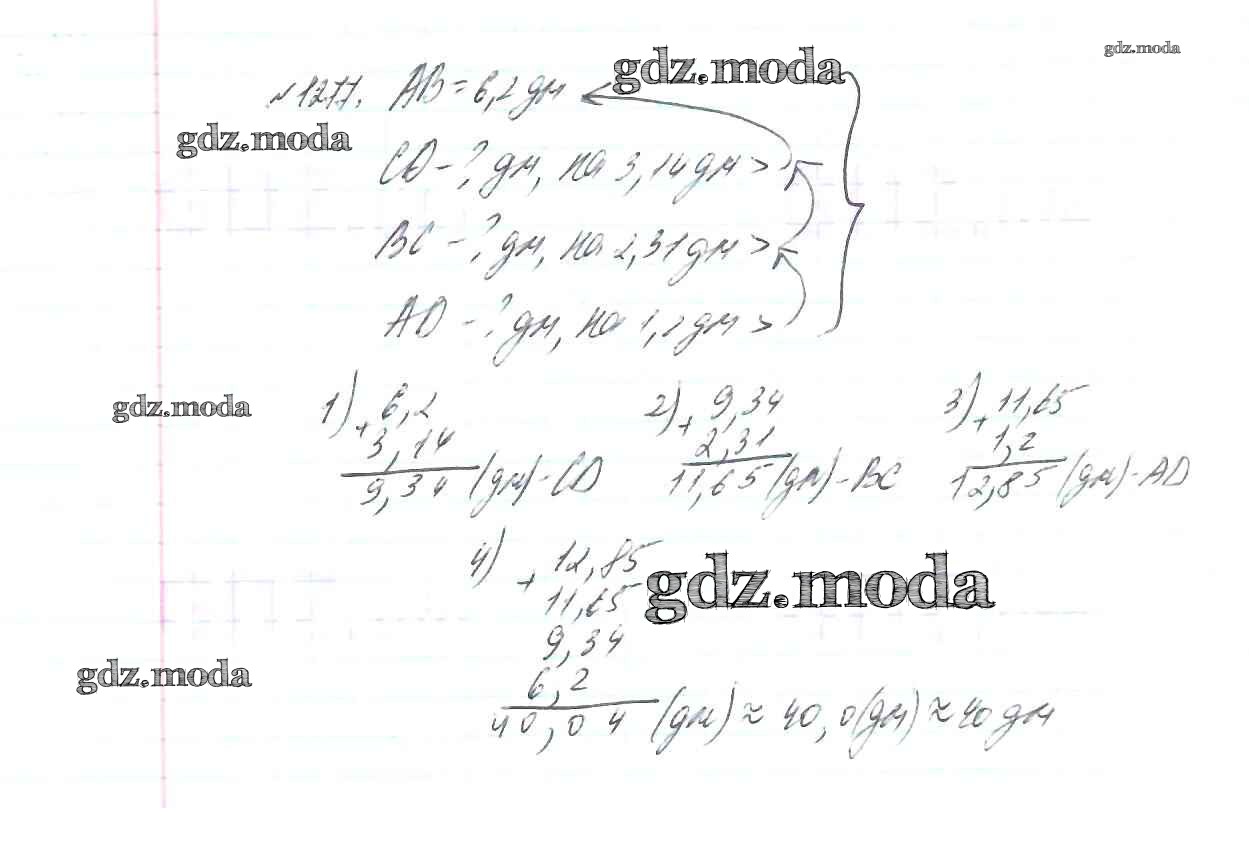 gdz.moda
gdz.moda
№1277. AB = 6,2 дм
gdz.moda
CD - ? дм, на 3,14 дм >
BC - ? дм, на 2,31 дм >
AD - ? дм, на 1,2 дм >
gdz.moda
1) + 6,2
3,14
9,34 (дм) - CD
2) + 9,34
2,31
11,65 (дм) - BC
3) + 11,65
1,2
12,85 (дм) - AD
4) + 12,85
11,65
9,34
6,2
40,04 (дм) ≈ 40,0 (дм) ≈ 40 дм
gdz.moda
gdz.moda